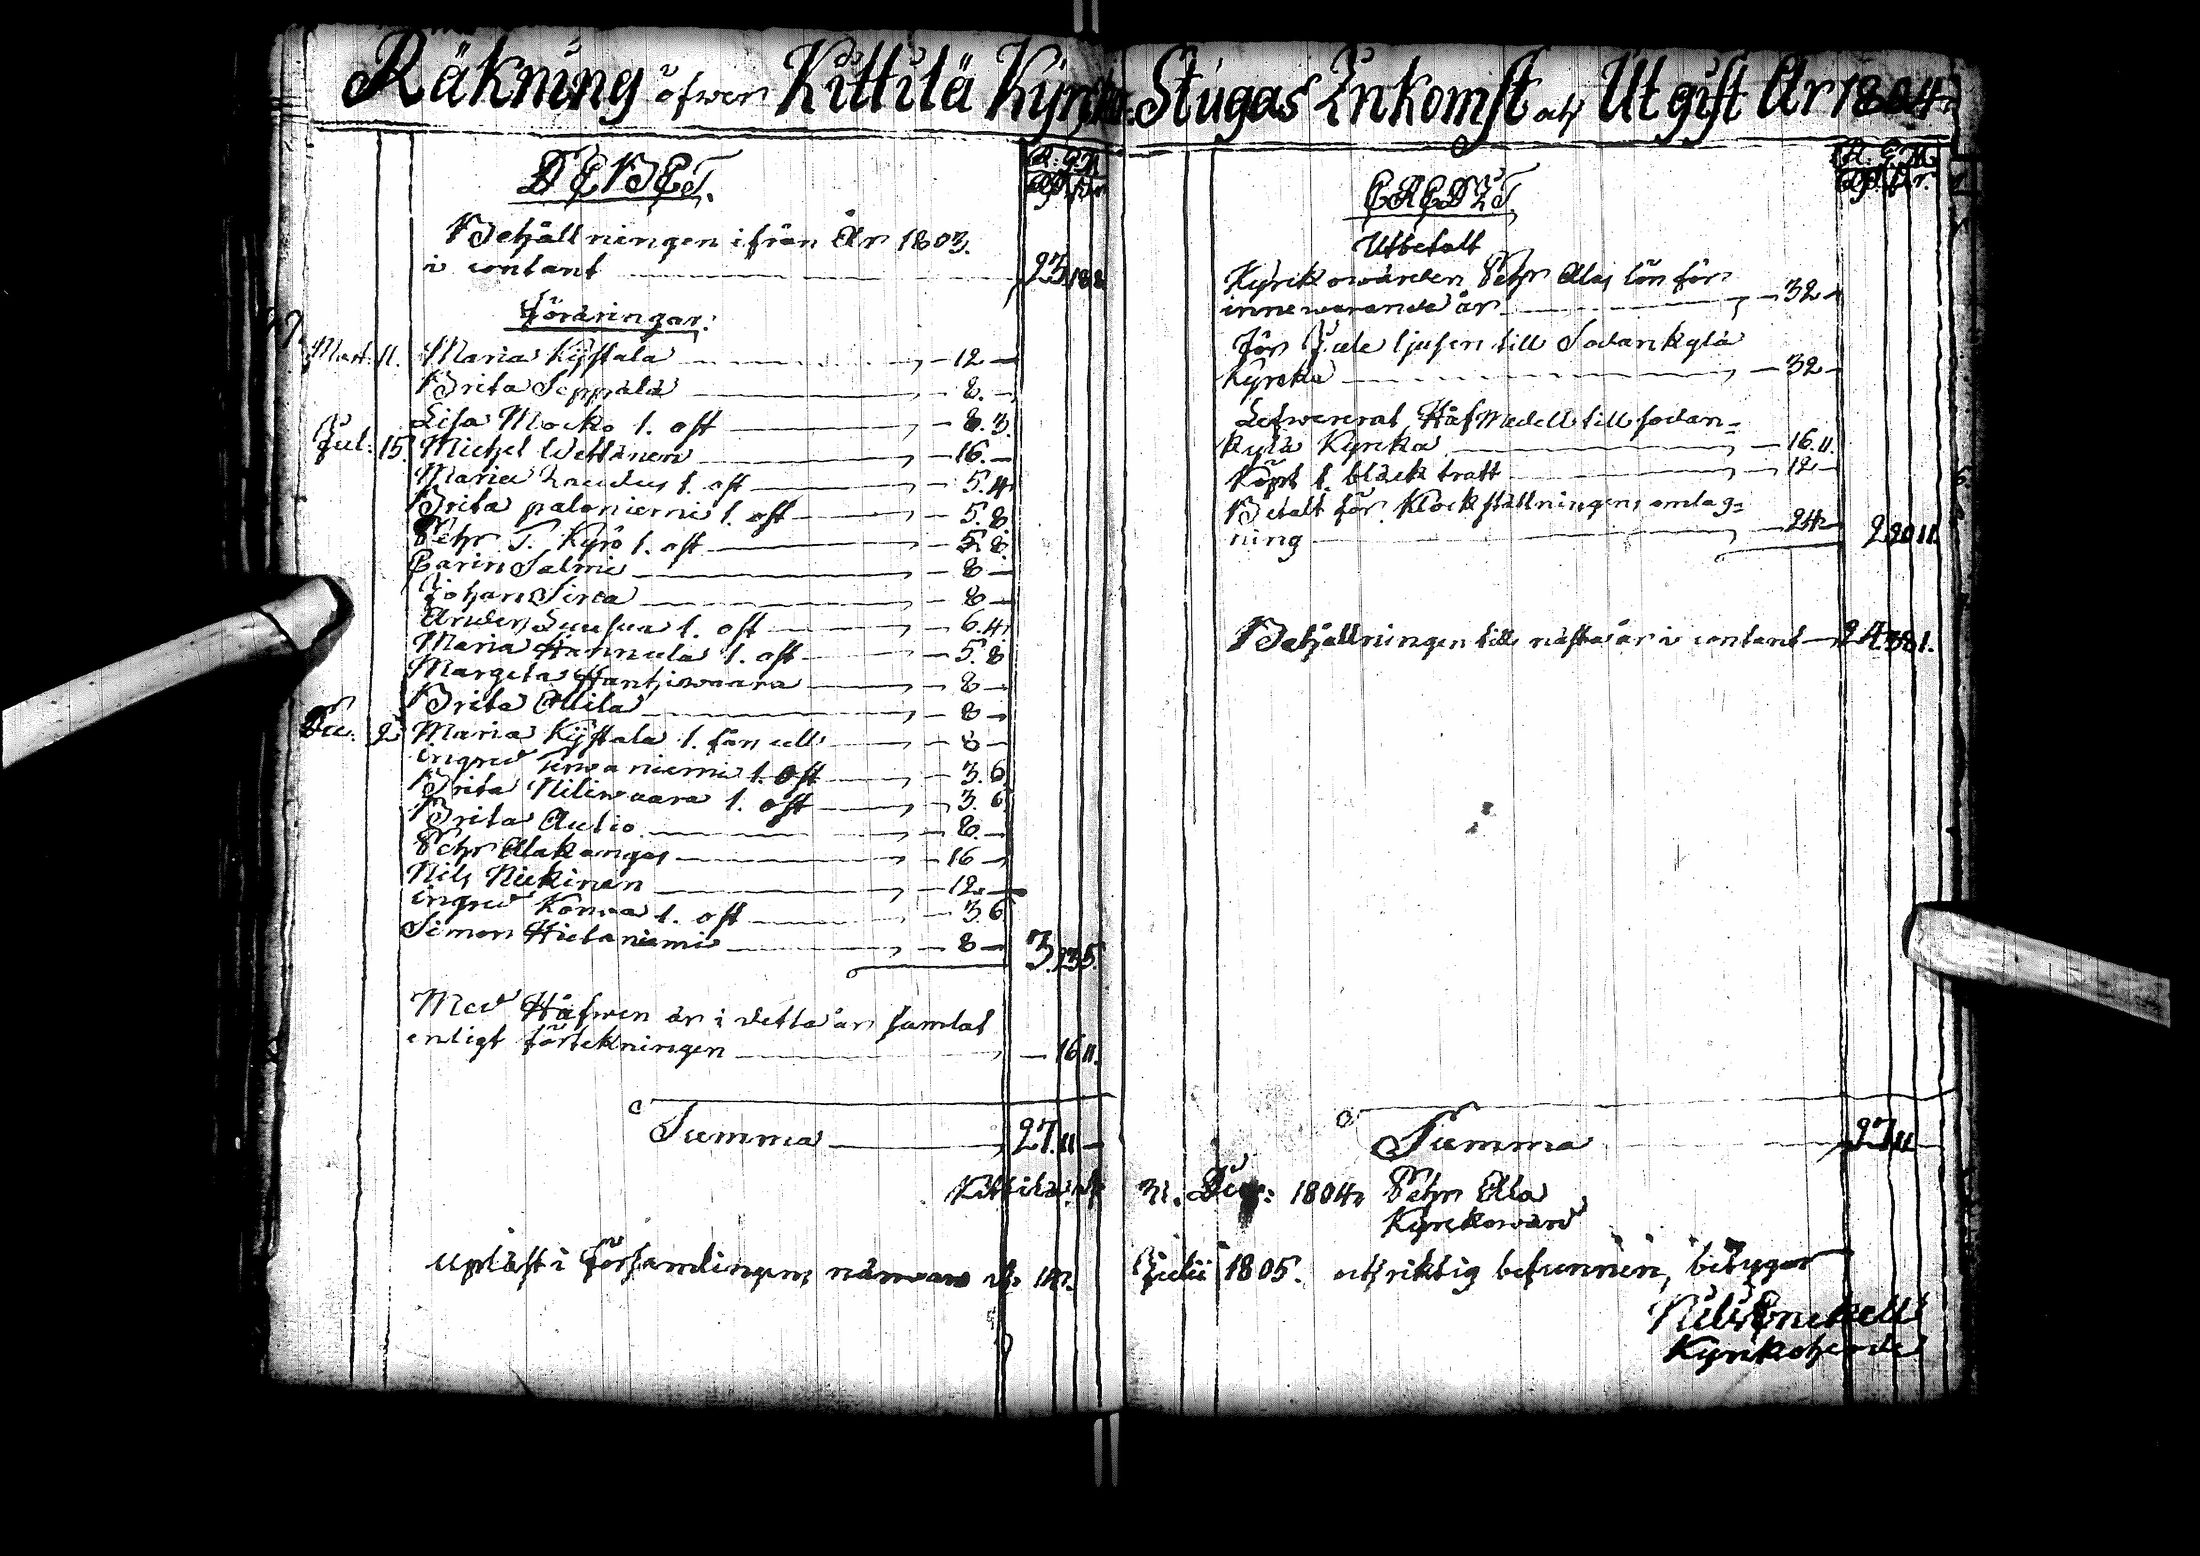 Räkning öfwer Kittilä Kyrko Stugas Inkomst och Utgift År 1804.
DEBET.
Behållningen ifrån År 1803.
i contant 23. 18 8
Föräringar.
Mart. 11. Maria Kÿstala 12 —
Brita Seppälä 8. —
Lisa Mocko 1. ost 8. 3.
Jul: 15. Michel Wettänen 16. —
Maria 1. ost 5. 4
Brita paloniemi 1. ost 5. 8
Pehr T. Kyrö 1. ost 5 8.
Carin Salmi 8 —
Johan Sirca 8 —
Anders Luusua 1. ost 6. 4
Maria Hannula 1. ost 5. 8
Margeta Hantjiwaara 8 —
Brita Ollila 8 —
Dec. 2 Maria Kÿstala 1. 8 —
ingred niemi 1. ost 3. 6
Brita Niliwaara 1. ost 3. 6
Brita Autio 8. —
Pehr Alakangas 16 —
Nils Nickinen 12. —
ingred Konwa 1. ost 3. 6
Simon Hietaniemi 8 — 3. 23 5.
Med Håfwen är i detta år samlat
enligt förtekningen — 16 11.
Summa 27. 11 —
Kittilä d.
upläst i Församlingens närwaro d. 14.
R. G. M.
CREDIT.
Utbetalt
Kyrkowärden Pehr Alas lön för
innewarande år — 32 —
för Jule ljusen till Sodankylä
Kyrka — 32 —
Lefwererat Håf Medell till sodan=
kylä Kyrka — 16. 11.
Köpt 1. bläck tratt — 12 —
Betalt för Klockställningens omlag=
ning — 24 — 2 20 11.
Behållningen till nästa år i contant — 24. 38 1.
Summa 27 11
31. Dec: 1804 Pehr Ala
Kyrkowärd
Julii 1805. och riktig befunnen, betygar
Nils Enckell
Kyrkoherde